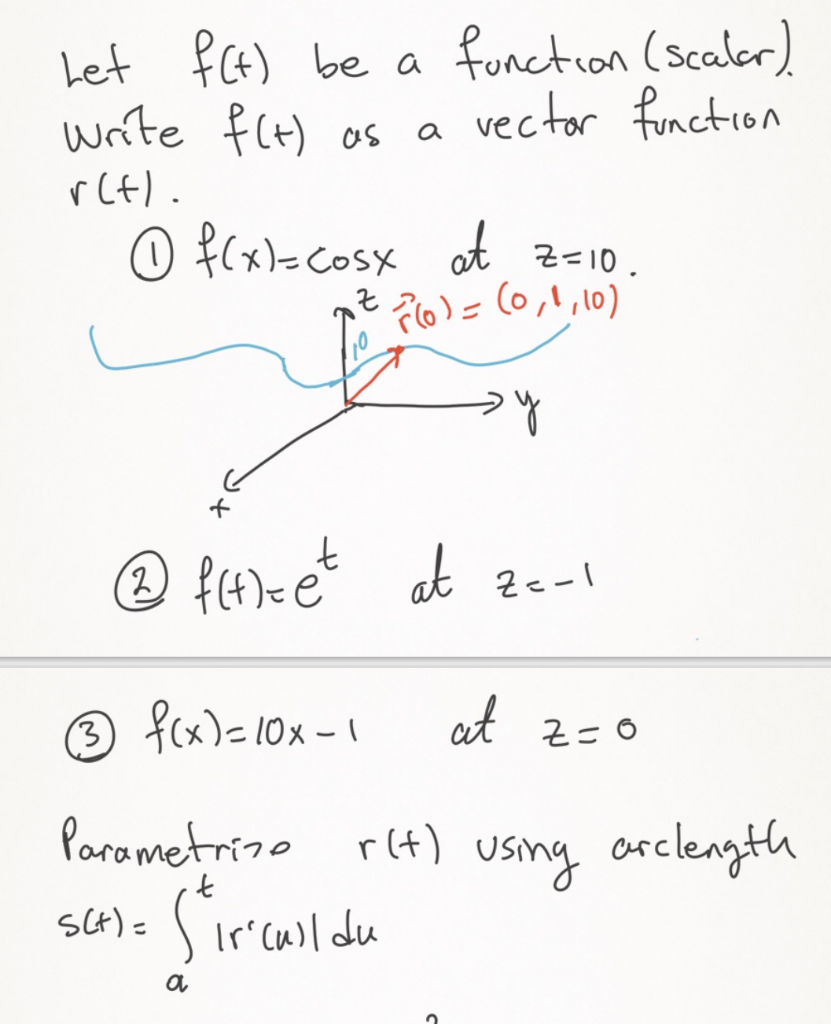 Let f(t) be a function (scalar).
Write f(t) as a vector function
r(t).
① f(x)=cosx at z=10.
z r⃗(0) = (0,1,10)
10
y
x
② f(t)=e^t at z=-1
③ f(x)=10x-1 at z=0
Parametrize r(t) using arclength
s(t)= ∫_a^t |r'(u)| du